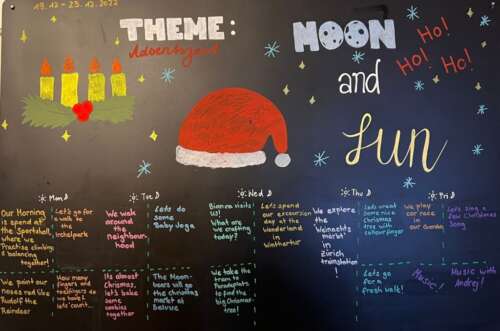 19.12 - 23.12.2022
THEME:
Adventszeit
MOON
and
Sun
Ho!
Ho!
Ho!
Mon
Tue
Wed
Thu
Fri
Our Morning
is spend at
the Sportshalle
where we
Practise climbing
& balancing
together!
Let's go for
a walk to
the
We walk
around
the
neighbour
hood
Lets do
some
Baby Yoga
Bianca visits
us!
What are
we crafting
today?
Lets spend
our excursion
day at the
Wonderland
in
Winthertur
We explore
the
Weinachts
markt
in
Zürich
Lets paint
some nice
Christmas
tree with
colour finger
We play
car race
in
our Gwändli
Lets sing a
few Christmas
Song
We paint our
noses red like
Rudolf the
Reindeer
How many
fingers and
do
we have?
lets count.
Its almost
Christmas,
let's bake
some
cookies
together
The Moon
bears will go
the christmas
market at
Belvue
We take the
tram to
Paradeplatz
to find the
big Christmas
tree!
Let's
go for a
fresh walk!
Music!
Music with
Andrej!